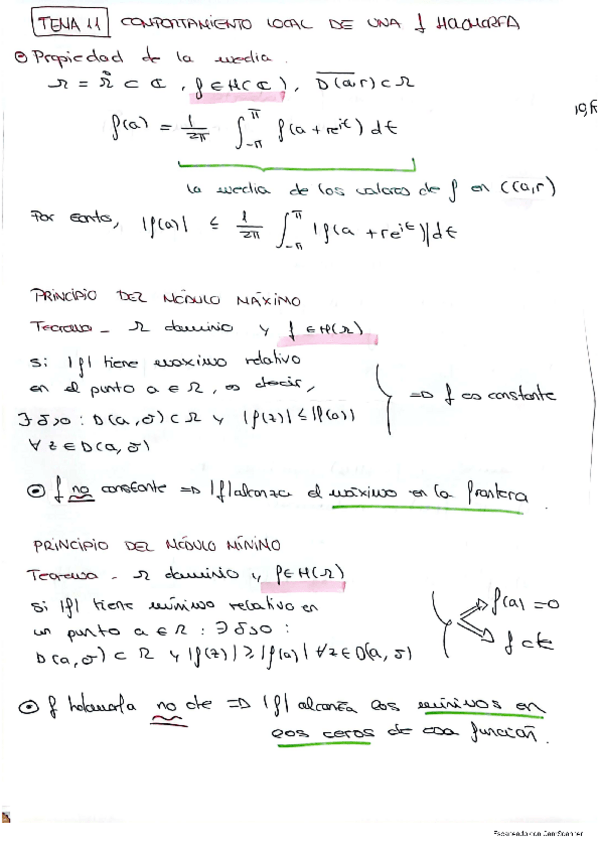 TEMA 11 COMPORTAMIENTO LOCAL DE UNA f HOLOMORFA
Propiedad de la media.
Ω = Ω̊ ⊂ ℂ, f ∈ H(ℂ), D̅(a,r) ⊂ Ω
f(a) = 1/2π ∫_{-π}^{π} f(a + re^{it}) dt
la media de los valores de f en C(a,r)
Por tanto, |f(a)| ≤ 1/2π ∫_{-π}^{π} |f(a + re^{it})| dt
PRINCIPIO DEL MÓDULO MÁXIMO
Teorema - Ω dominio y f ∈ H(Ω)
si |f| tiene maximo relativo
en el punto a ∈ Ω, es decir,
∃ δ>0 : D(a,δ) ⊂ Ω y |f(z)| ≤ |f(a)|
∀ z ∈ D(a,δ)
⇒ f es constante
f no constante ⇒ |f| alcanza el máximo en la frontera.
PRINCIPIO DEL MÓDULO MÍNIMO
Teorema - Ω dominio y f ∈ H(Ω)
si |f| tiene mínimo relativo en
un punto a ∈ Ω : ∃ δ>0 :
D(a,δ) ⊂ Ω y |f(z)| ≥ |f(a)| ∀ z ∈ D(a,δ)
f(a) = 0
f cte
f holomorfa no cte ⇒ |f| alcanza los mínimos en
los ceros de esa función.
Escaneado con CamScanner